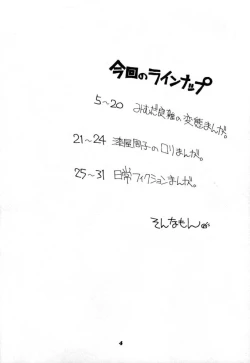 今回のラインナップ
5~20 みずだ良輔の変態まんが。
21~24 湊屋周子のロリまんが。
25~31 日常フィクションまんが。
そんなもんか
4